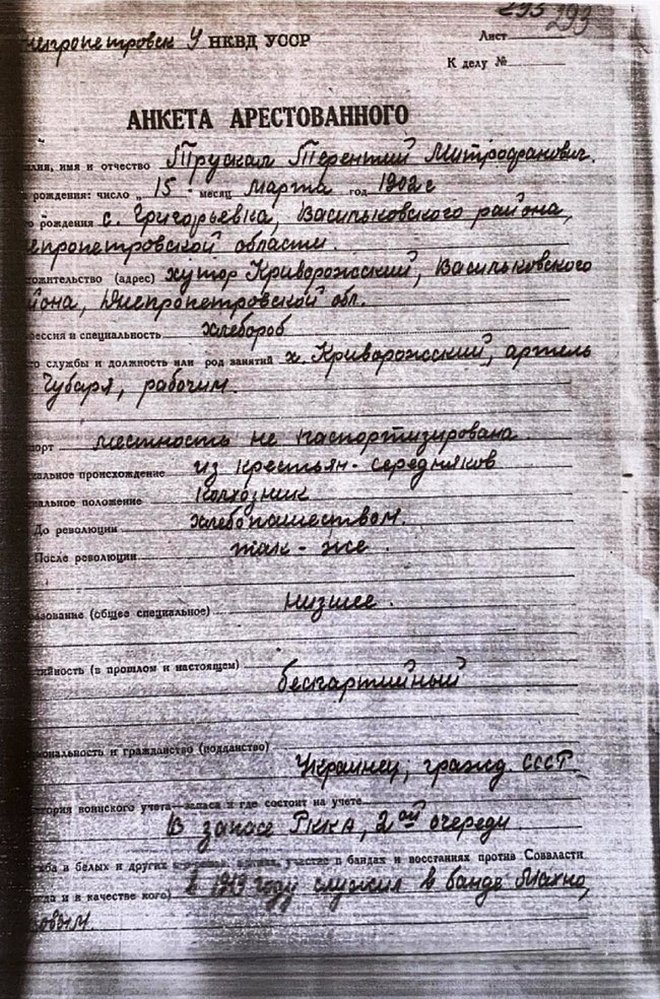 293 299
непропетровск У НКВД УССР
Лист
К делу №
АНКЕТА АРЕСТОВАННОГО
илия, имя и отчество Трускал Терентий Митрофанович.
рождения: число „ 15 " месяц Марта год 1902 г
о рождения с. Григорьевка, Васильковского района,
епропетровской области.
ожительство (адрес) хутор Криворожский, Васильковского
йона, Днепропетровской обл.
ессия и специальность хлебороб
о службы и должность или род занятий х. Криворожский, артель
Чубаря, рабочим.
орт местность не паспортизирована.
альное происхождение из крестьян-середняков
альное положение колхозник
До революции хлебопашеством.
После революции так-же.
разование (общее специальное) низшее.
тийность (в прошлом и настоящем)
беспартийный
ональность и гражданство (подданство)
Украинец, гражд. СССР
егория воинского учета—запаса и где состоит на учете
В запасе РККА, 2ой очереди.
жба в белых и других участие в бандах и восстаниях против Соввласти
гда и в качестве кого) в 1919 году служил в банде Махно,
довым.